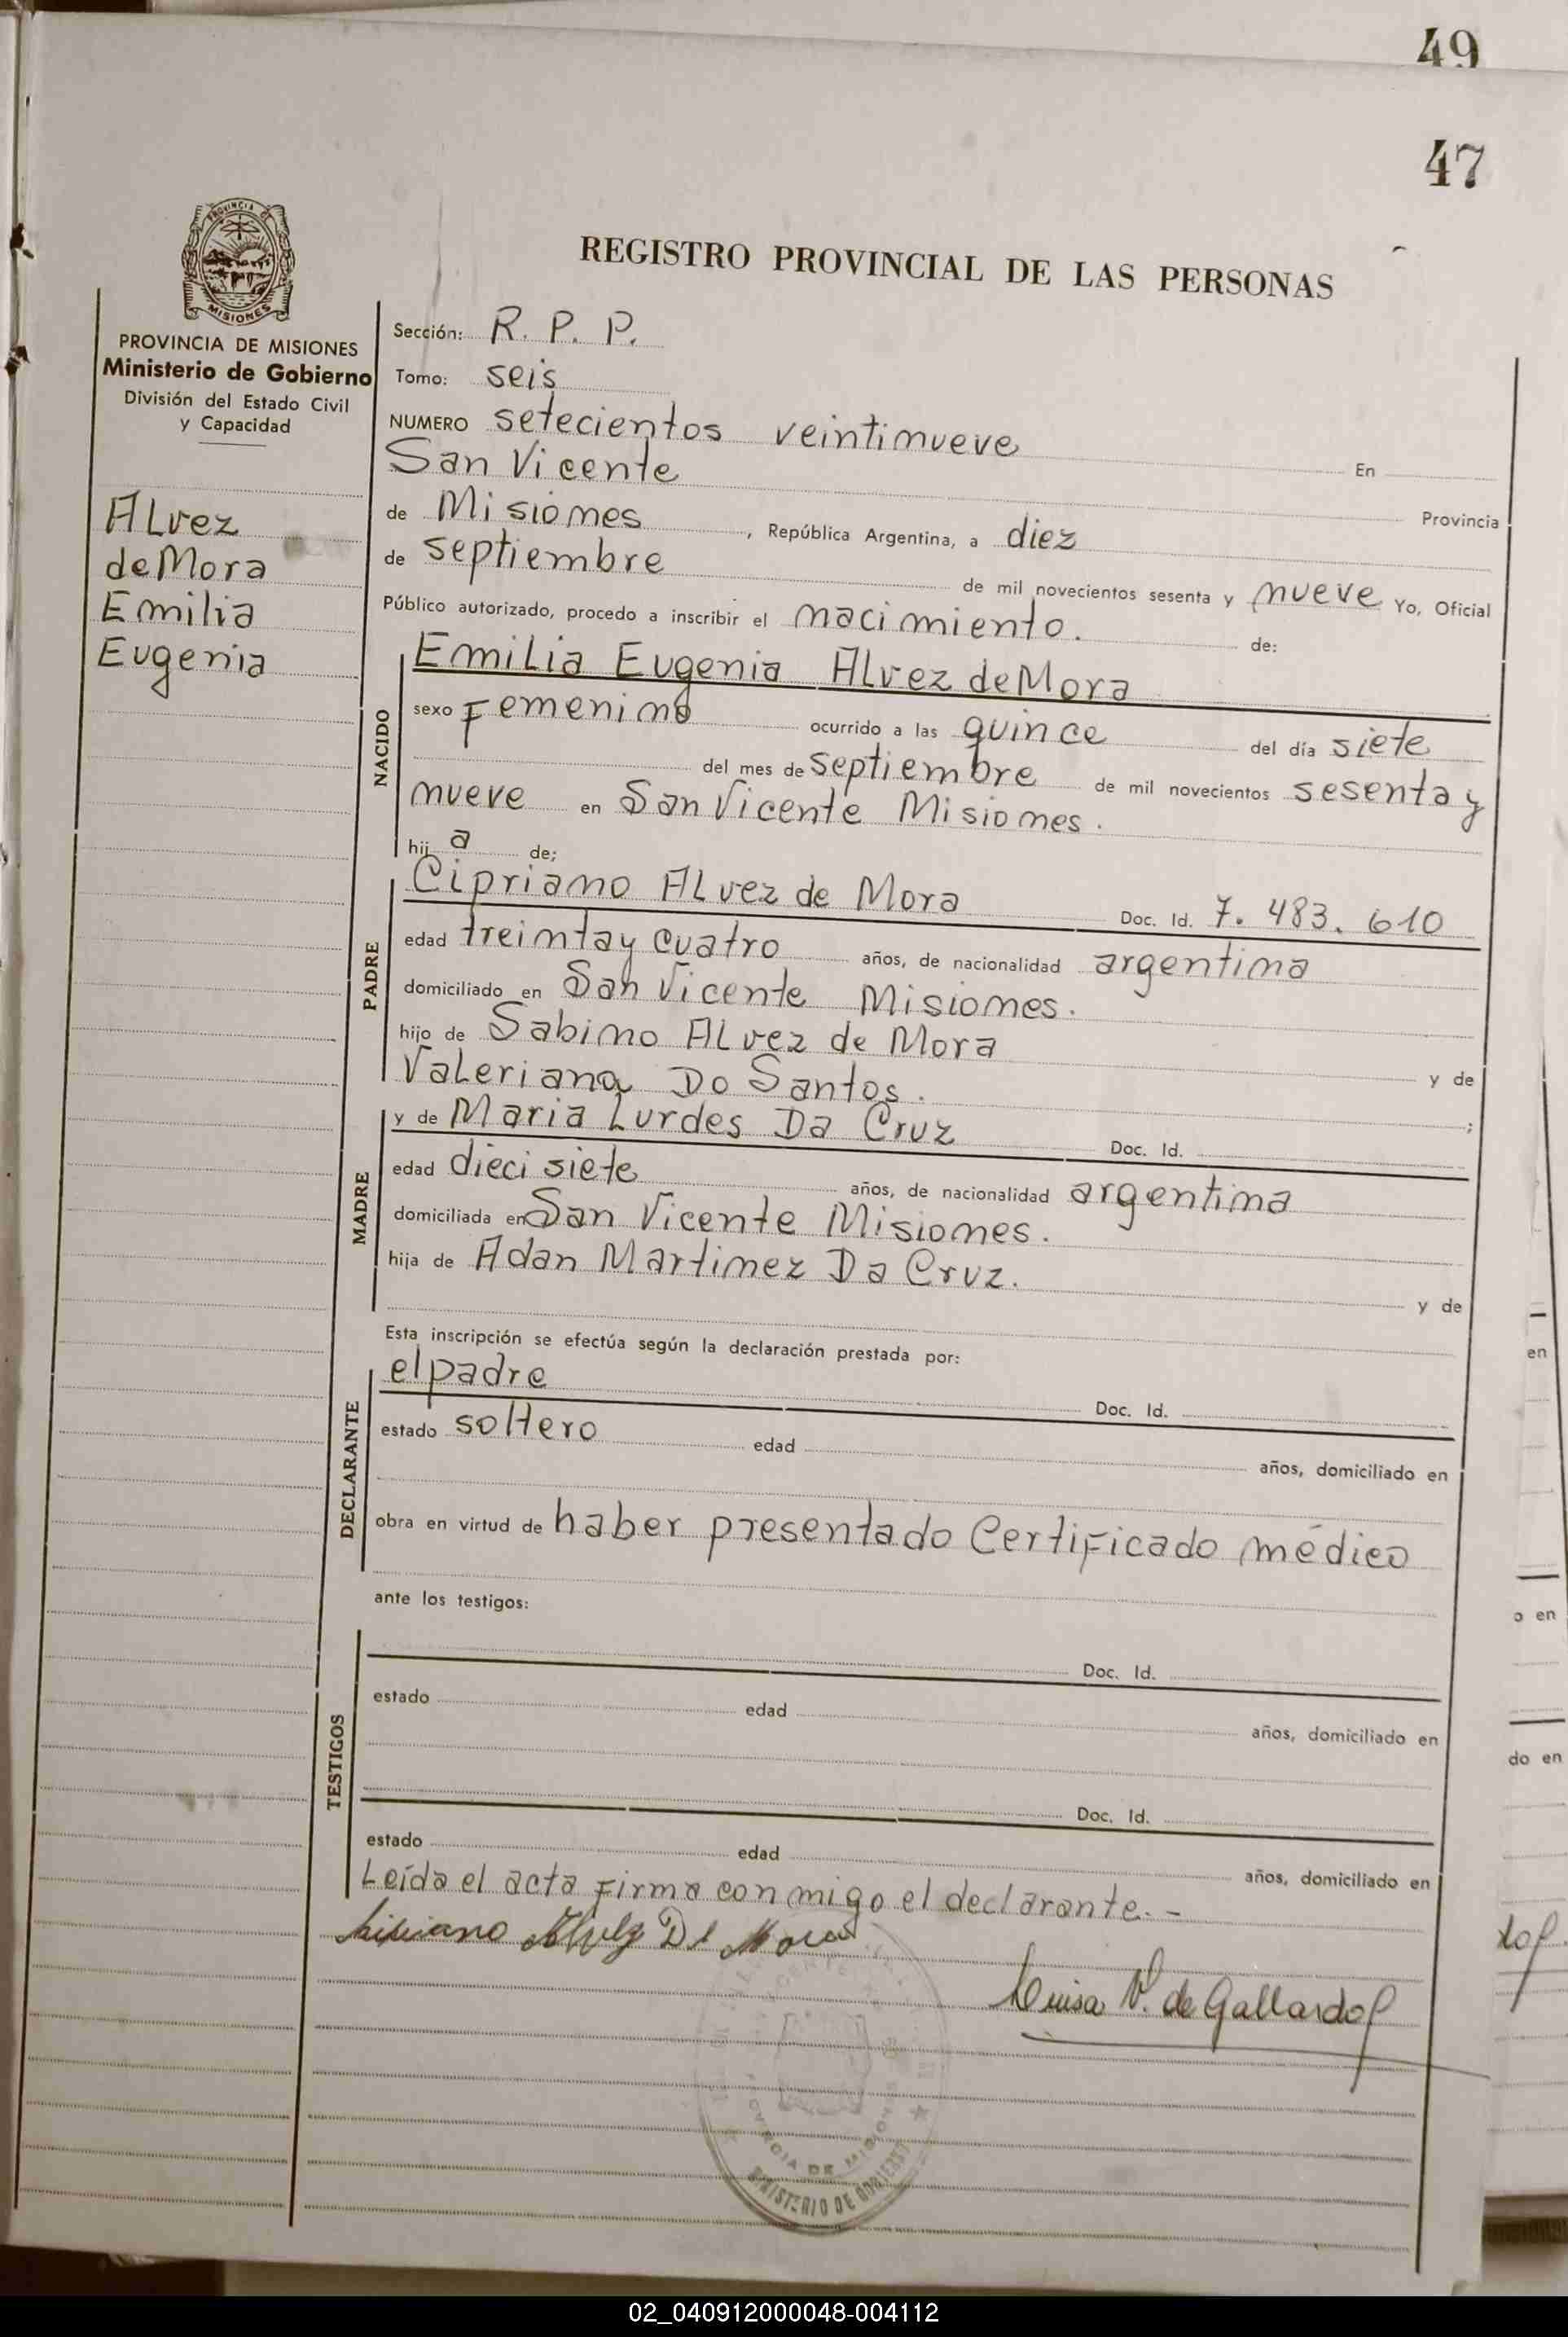 49
47
REGISTRO PROVINCIAL DE LAS PERSONAS
PROVINCIA DE MISIONES
PROVINCIA DE MISIONES
Ministerio de Gobierno
División del Estado Civil
y Capacidad
Alvez
de Mora
Emilia
Eugenia
Sección: R. P. P.
Tomo: seis
NUMERO setecientos veintinueve En
San Vicente Provincia
de Misiones, República Argentina, a diez
de septiembre de mil novecientos sesenta y nueve Yo, Oficial
Público autorizado, procedo a inscribir el nacimiento. de:
NACIDO
Emilia Eugenia Alvez de Mora
sexo Femenino ocurrido a las quince del día siete
del mes de septiembre de mil novecientos sesenta y
nueve en San Vicente Misiones.
hij a de;
PADRE
Cipriano Alvez de Mora Doc. Id. 7. 483. 610
edad treinta y cuatro años, de nacionalidad argentina
domiciliado en San Vicente Misiones.
hijo de Sabino Alvez de Mora y de
Valeriana Do Santos. ;
MADRE
y de Maria Lurdes Da Cruz Doc. Id.
edad dieci siete años, de nacionalidad argentina
domiciliada en San Vicente Misiones.
hija de Adan Martinez Da Cruz. y de
Esta inscripción se efectúa según la declaración prestada por:
DECLARANTE
el padre Doc. Id.
estado soltero edad años, domiciliado en
obra en virtud de haber presentado Certificado médico
ante los testigos:
TESTIGOS
Doc. Id.
estado edad años, domiciliado en
Doc. Id.
estado edad años, domiciliado en
Leída el acta firma conmigo el declarante. -
Alvez De Mora
Luisa V. de Gallardo
PROVINCIA DE MISIONES
MINISTERIO DE GOBIERNO
en
o en
do en
02_040912000048-004112